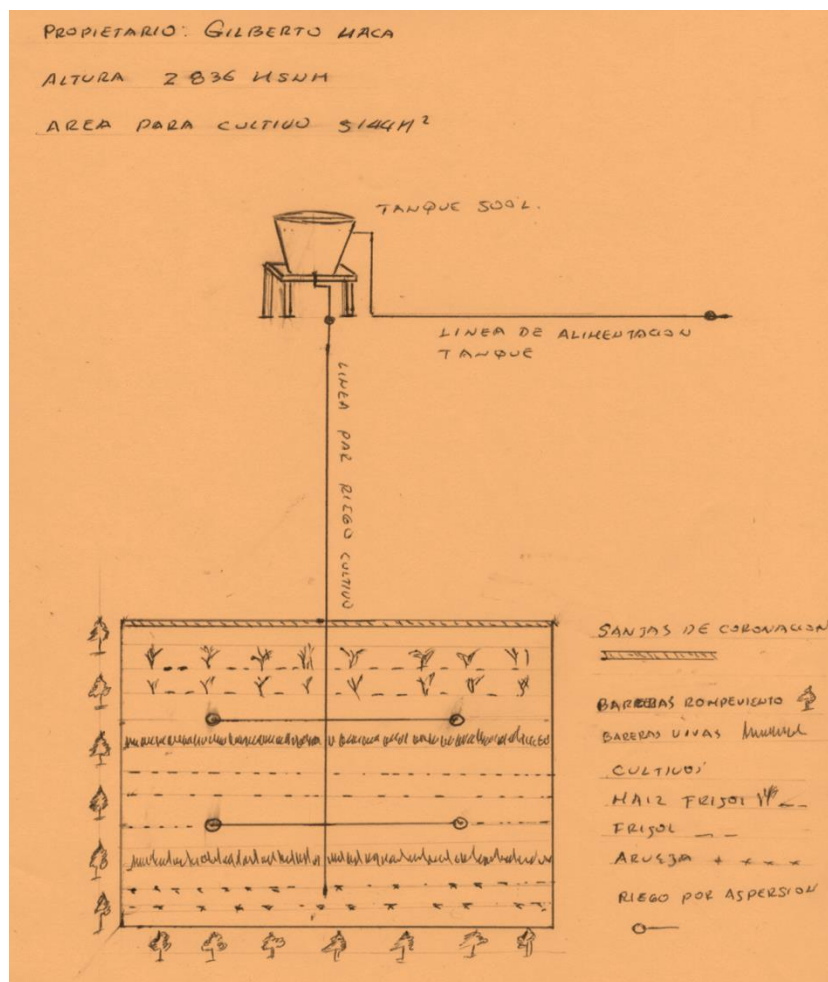 PROPIETARIO: GILBERTO MACA
ALTURA 2836 MSNM
AREA PARA CULTIVO 5144M²
TANQUE 500L.
LINEA DE ALIMENTACION
TANQUE
LINEA PAR RIEGO CULTIVO
SANJAS DE CORONACION
BARERAS ROMPEVIENTO
BARERAS VIVAS
CULTIVOS
MAIZ FRIJOL
FRIJOL
ARVEJA
RIEGO POR ASPERSION